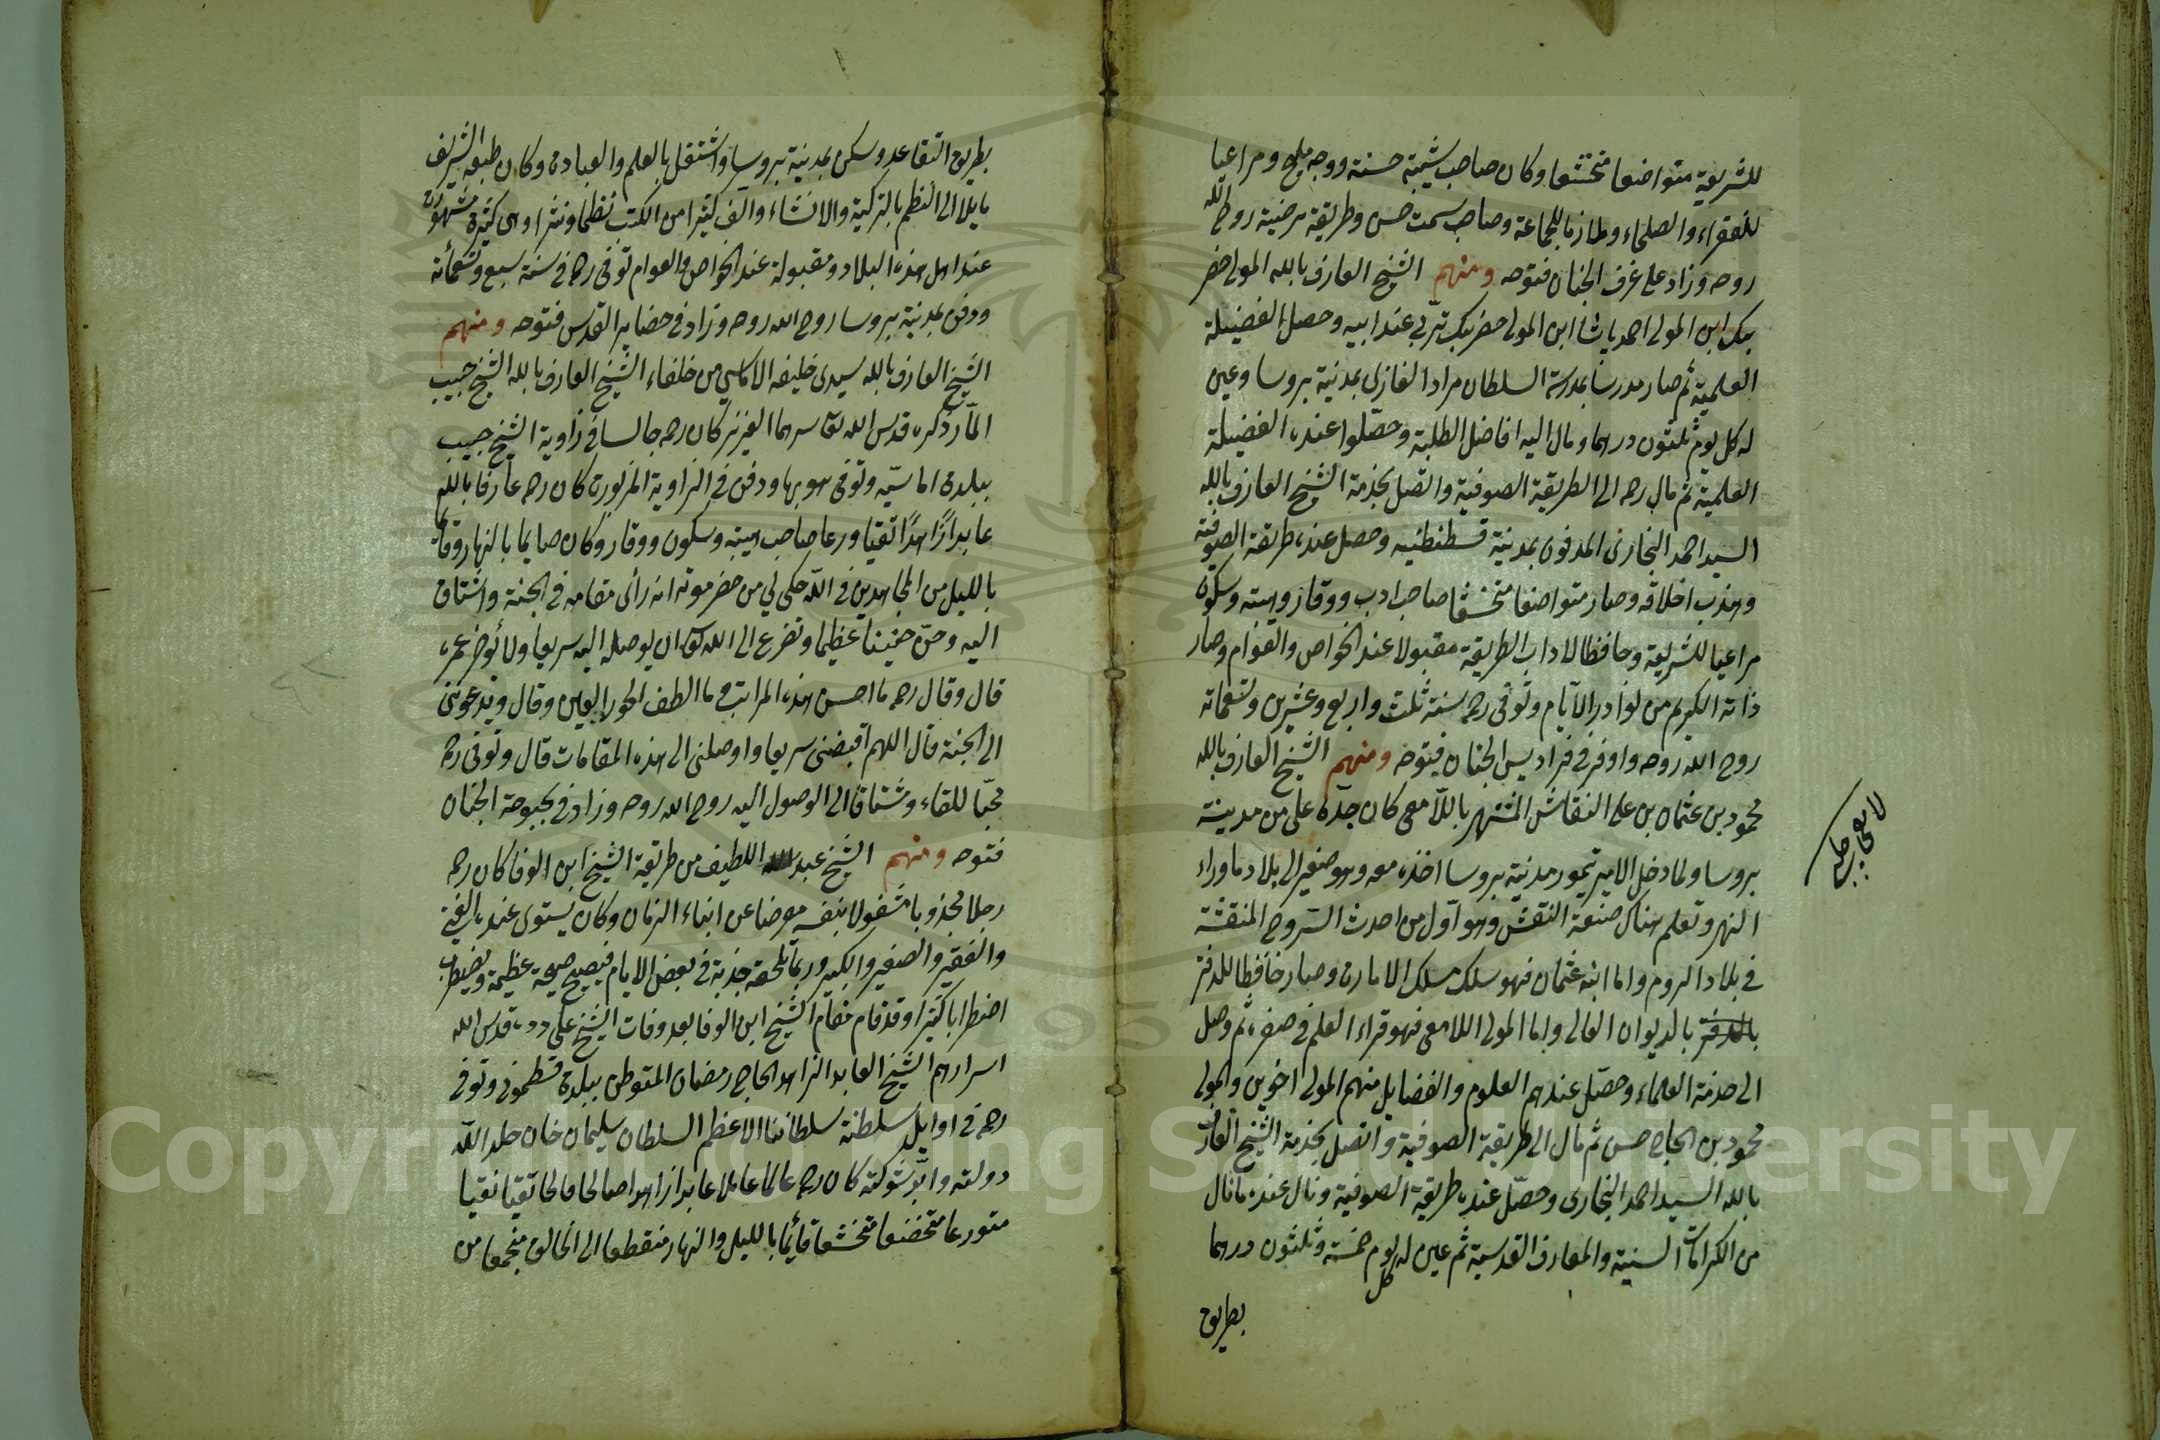 للشريعة متواضعا متخشعا وكان صاحب شيبة حسنة ووجه مليح ومراعيا
للفقراء والصلحاء وملازما للجماعة وصاحب سمت حسن وطريقة مرضية روح الله
روحه وزاد على غرف الجنان فتوحه ومنهم الشيخ العارف بالله المولى خضر
بك ابن المولى احمد پاشا ابن المولى خضر بك تربى عند ابيه وحصل الفضيلة
العلمية ثم صار مدرسا بمدرسة السلطان مراد الغازى بمدينة بروسا وعين
له كل يوم ثلثون درهما ومال اليه افاضل الطلبة وحصّلوا عنده الفضيلة
العلمية ثم مال رحه الى الطريقة الصوفية واتصل بخدمة الشيخ العارف بالله
السيد احمد البخارى المدفون بمدينة قسطنطنيه وحصل عنده طريقة الصوفية
وهذب اخلاقه وصار متواضعا متخشعا صاحب ادب ووقار وهيبته وسكون
مراعيا للشريعة وحافظا لاداب الطريقة مقبولا عند الخواص والعوام وصار
ذاته الكريم من نوادر الايام وتوفى رحه سنة ثلث واربع وعشرين وتسعمائه
روح الله روحه واوفر فى فراديس الجنان فتوحه ومنهم الشيخ العارف بالله
محمود بن عثمان بن على النقاش المشتهر باللامعى كان جدّه على من مدينة
بروسا ولما دخل الامير تيمور مدينة بروسا اخذه معه وهو صغير الى بلاد ماوراء
النهر وتعلم هناك صنعة النقش وهو اول من احدث السّروج المنقشة
فى بلاد الروم واما ابنه عثمان فهو سلك مسلك الامارة وصار حافظا للدفتر
بالدفتر بالديوان العالى واما المولى اللامعى فهو قراء العلم فى صغره ثم وصل
الى خدمة العلماء وحصّل عندهم العلوم والفضايل منهم المولى اخوين والمولى
محمود بن الحاج حسن ثم مال الى طريقة الصوفية واتصل بخدمة الشيخ العارف
بالله السيد احمد البخارى وحصّل عنده طريقة الصوفية ونال عنده ما نال
من الكرامات السنية والمعارف القدسية ثم عين له كل يوم خمسة وثلثون درهما
بطريق
لامعى چلبى
بطريق التقاعد وسكن بمدينة بروسا واشتغل بالعلم والعبادة وكان طبعه الشريف
مايلا الى النظم بالتركية والانشاء والف كثيرا من الكتب نظما ونثرا وهى كثيرة مشهورة
عند اهل هذه البلاد ومقبولة عند الخواص والعوام توفى رحه فى سنة سبع وتسعمائة
ودفن بمدينة بروسا روح الله روحه وزاد فى حضاير القدس فتوحه ومنهم
الشيخ العارف بالله سيدى خليفه الاماسى من خلفاء الشيخ العارف بالله الشيخ حبيب
المّار ذكره قدس الله تعا سرهما العزيز كان رحه جالسا فى زاوية الشيخ حبيب
ببلدة اماسيّه وتوفى هو بها ودفن فى الزاوية المزبورة كان رحه عارفا بالله
عابدا زاهدًا تقيا ورعا صاحب هيبه وسكون ووقار وكان صايما بالنهار وقايما
بالليل من المجاهدين فى الله حكى لى من حضر موته انه رأى مقامه فى الجنة واشتاق
اليه وحنّ حنينا عظيما وتضرع الى الله تعا ان يوصله اليه سريعا ولا يؤخر عمره
قال وقال رحه ما احسن هذه المراتب وما الطف الحور العين وقال ويدعوننى
الى الجنة قال اللهم اقبضنى سريعا واوصلنى الى هذه المقامات قال وتوفى رحه
محبّا للقاء ومشتاقا الى الوصول اليه روح الله روحه وزاد فى بحبوحة الجنان
فتوحه ومنهم الشيخ عبد اللطيف من طريقة الشيخ ابن الوفا كان رحه
رجلا مجذوبا مشغولا بنفسه معرضا عن ابناء الزمان وكان يستوى عنده الغنى
والفقير والصغير والكبير وربما تلحقه جذبة فى بعض الايام فيصيح صيحة عظيمة ويضطرب
اضطرابا كثيرا وقد قام مقام الشيخ ابن الوفا بعد وفات الشيخ على دده قدس الله
اسرارهم الشيخ العابد الزاهد الحاج رمضان المتوطن ببلدة قسطمونى وتوفى
رحه فى اوايل سلطنة سلطاننا الاعظم السلطان سليمان خان خلد الله
دولته وابّد شوكته كان رحه عالما عاملا عابدا زاهدا صالحا فالحا تقيا نقيا
متورعا متخضعا متخشعا قائما بالليل والنهار منقطعا الى الخالق منجمعا من